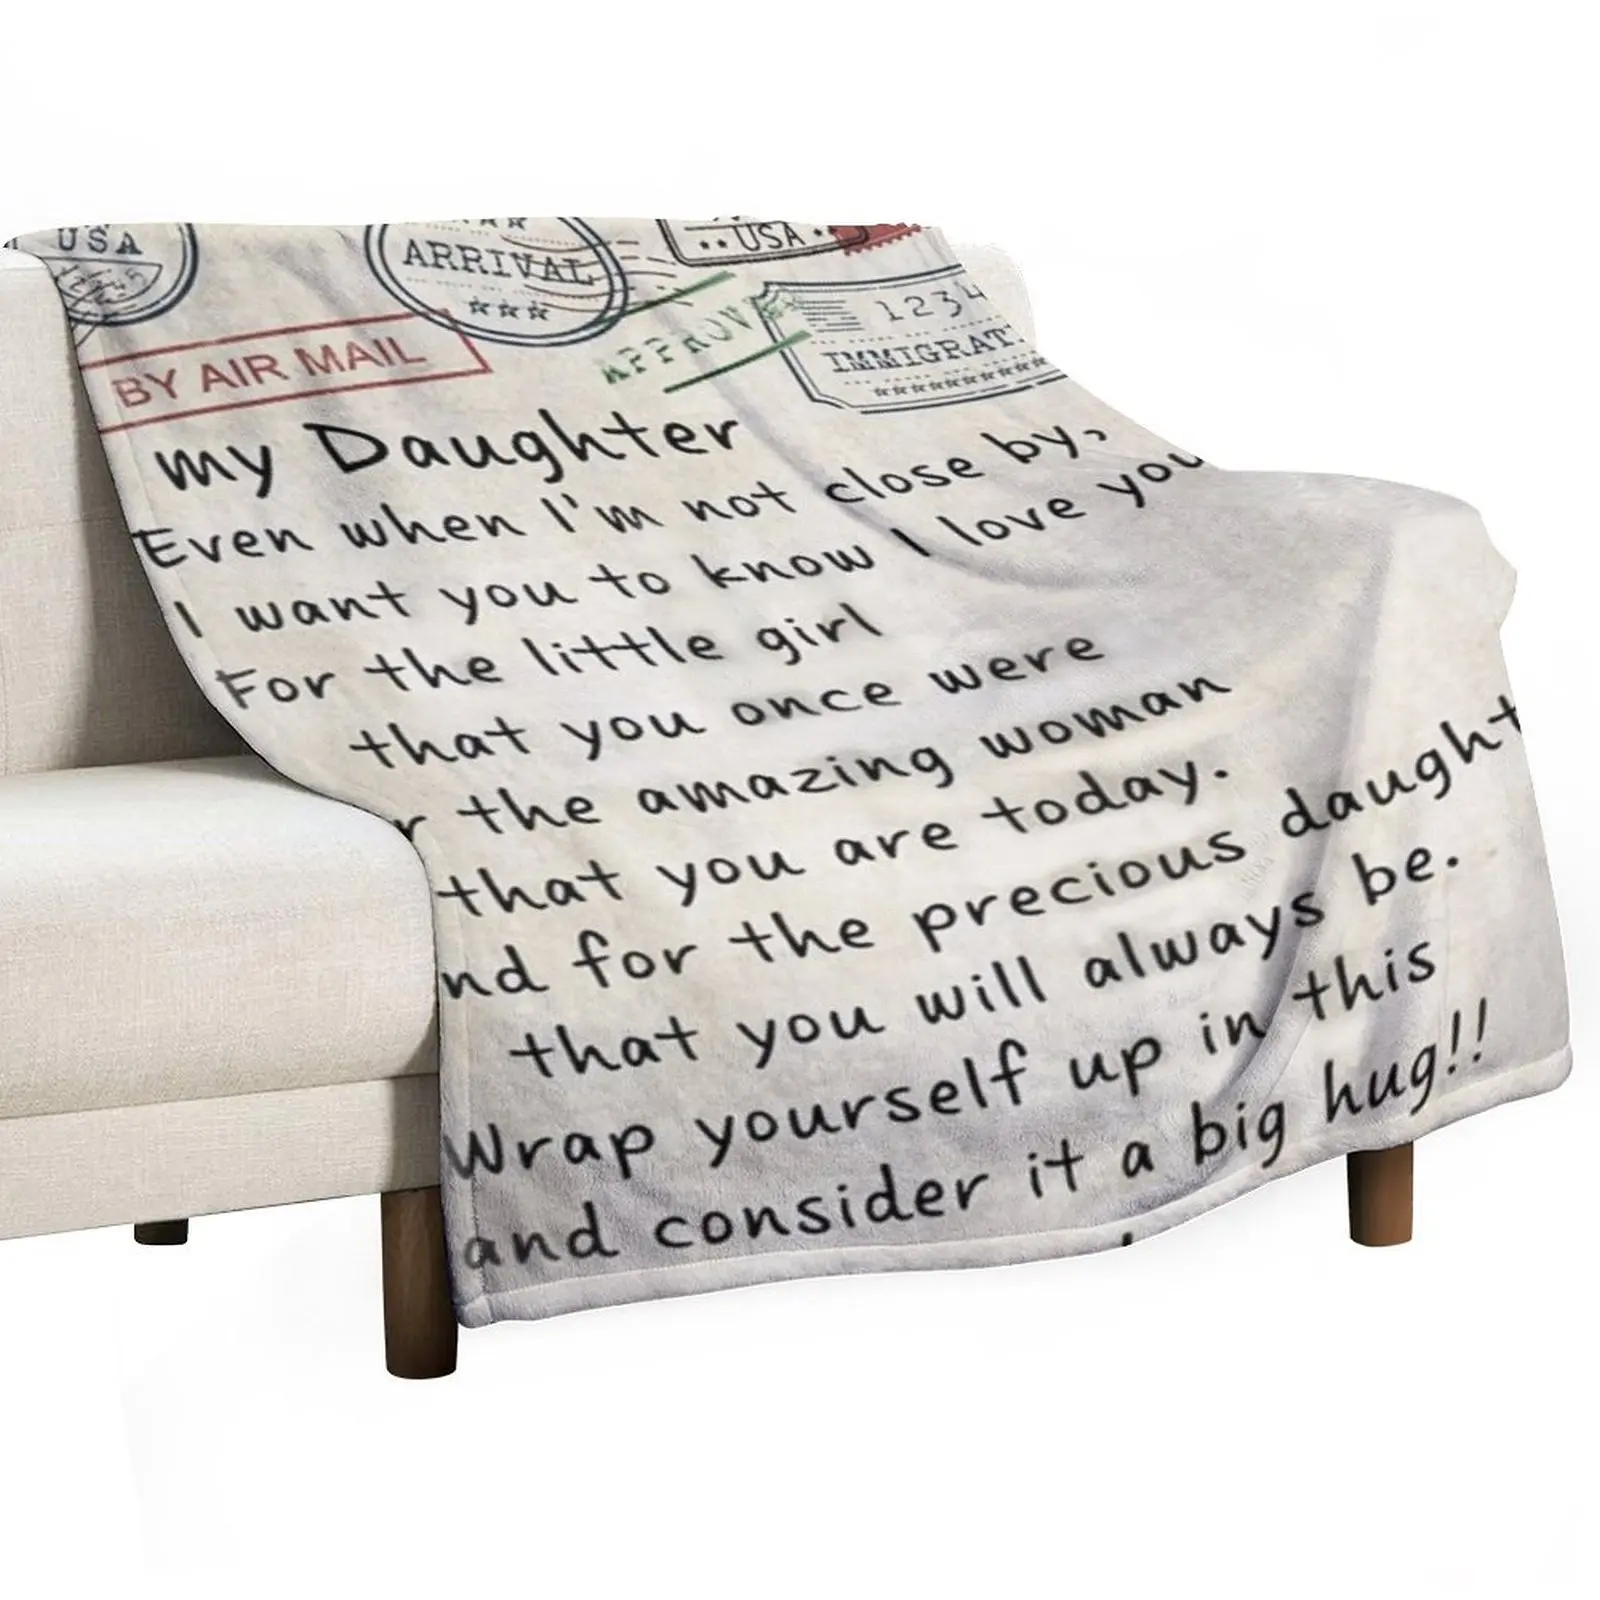 USA
ARRIVAL
USA
BY AIR MAIL
APPROVE
1234
IMMIGRAT
my Daughter
Even when I'm not close by,
I want you to know I love you
For the little girl
that you once were
r the amazing woman
that you are today.
nd for the precious daught
that you will always be.
Wrap yourself up in this
and consider it a big hug!!